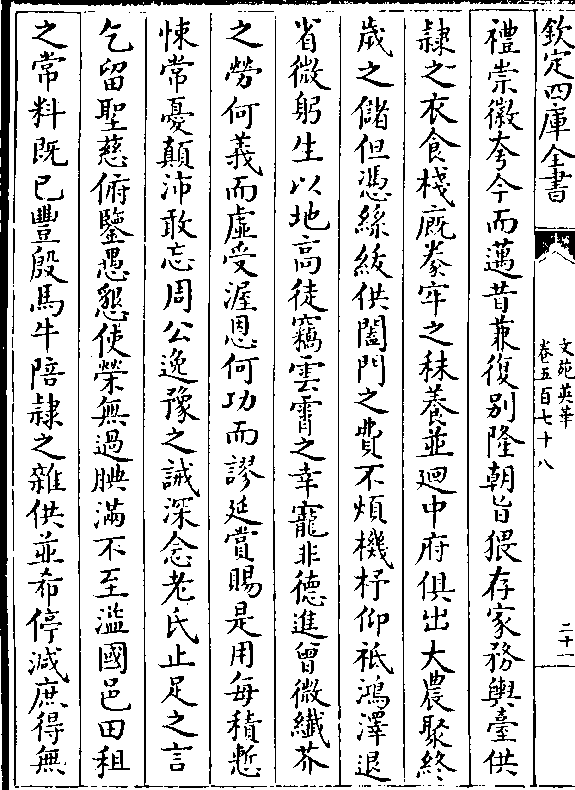 欽定四庫全書
文苑英華
卷五百七十八
二十一
禮崇徽夸今而邁昔兼復别隆朝旨猥存家務輿臺供
隷之衣食棧廐豢牢之秣養並廻中府俱出大農聚終
歳之儲但憑絲綍供闔門之費不煩機杼仰祗鴻澤退
省微躬生以地高徒竊雲霄之幸寵非德進曾微纎芥
之勞何義而虚受渥恩何功而謬延賞賜是用每積慙
悚常憂顛沛敢忘周公逸豫之誡深念老氏止足之言
乞留聖慈俯鑒愚懇使榮無過腆滿不至溢國邑田租
之常料既已豐殷馬牛陪隷之雜供並希停減庶得無